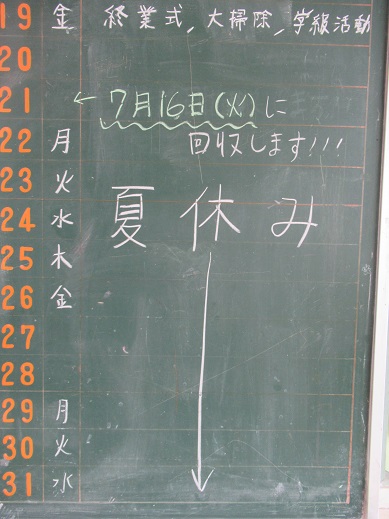 19 金 終業式, 大掃除, 学級活動
20
21 ← 7月16日(火)に
22 月 回収します!!!
23 火
夏休み
24 水
25 木
26 金
27
28
29 月
30 火
31 水